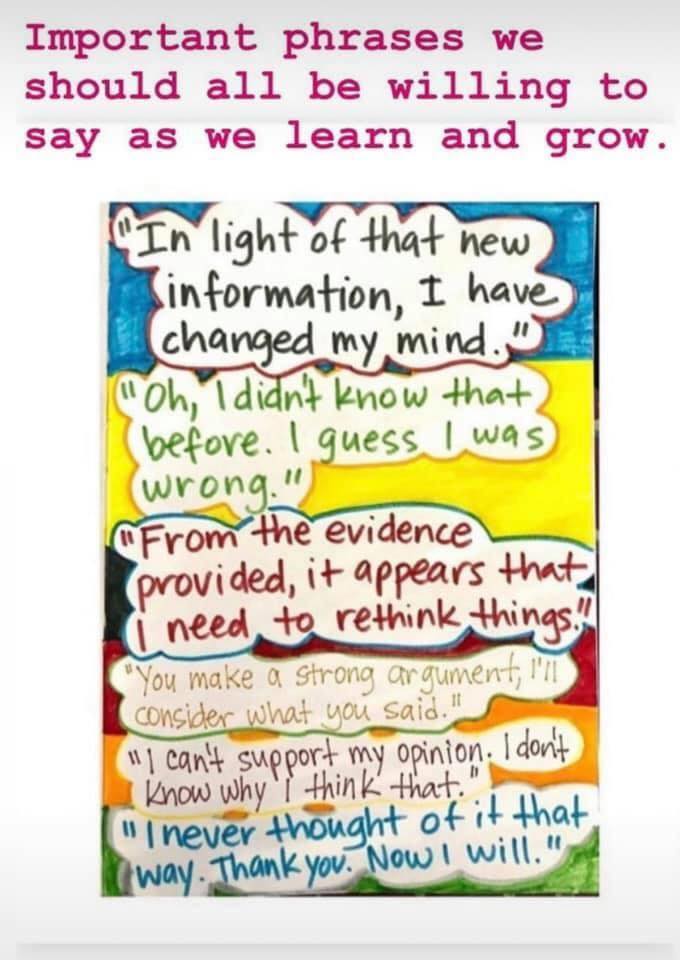 Important phrases we
should all be willing to
say as we learn and grow.
"In light of that new
information, I have
changed my mind."
"Oh, I didn't know that
before. I guess I was
wrong."
"From the evidence
provided, it appears that
I need to rethink things."
"You make a strong argument, I'll
consider what you said."
"I can't support my opinion. I don't
know why I think that."
"I never thought of it that
way. Thank you. Now I will."